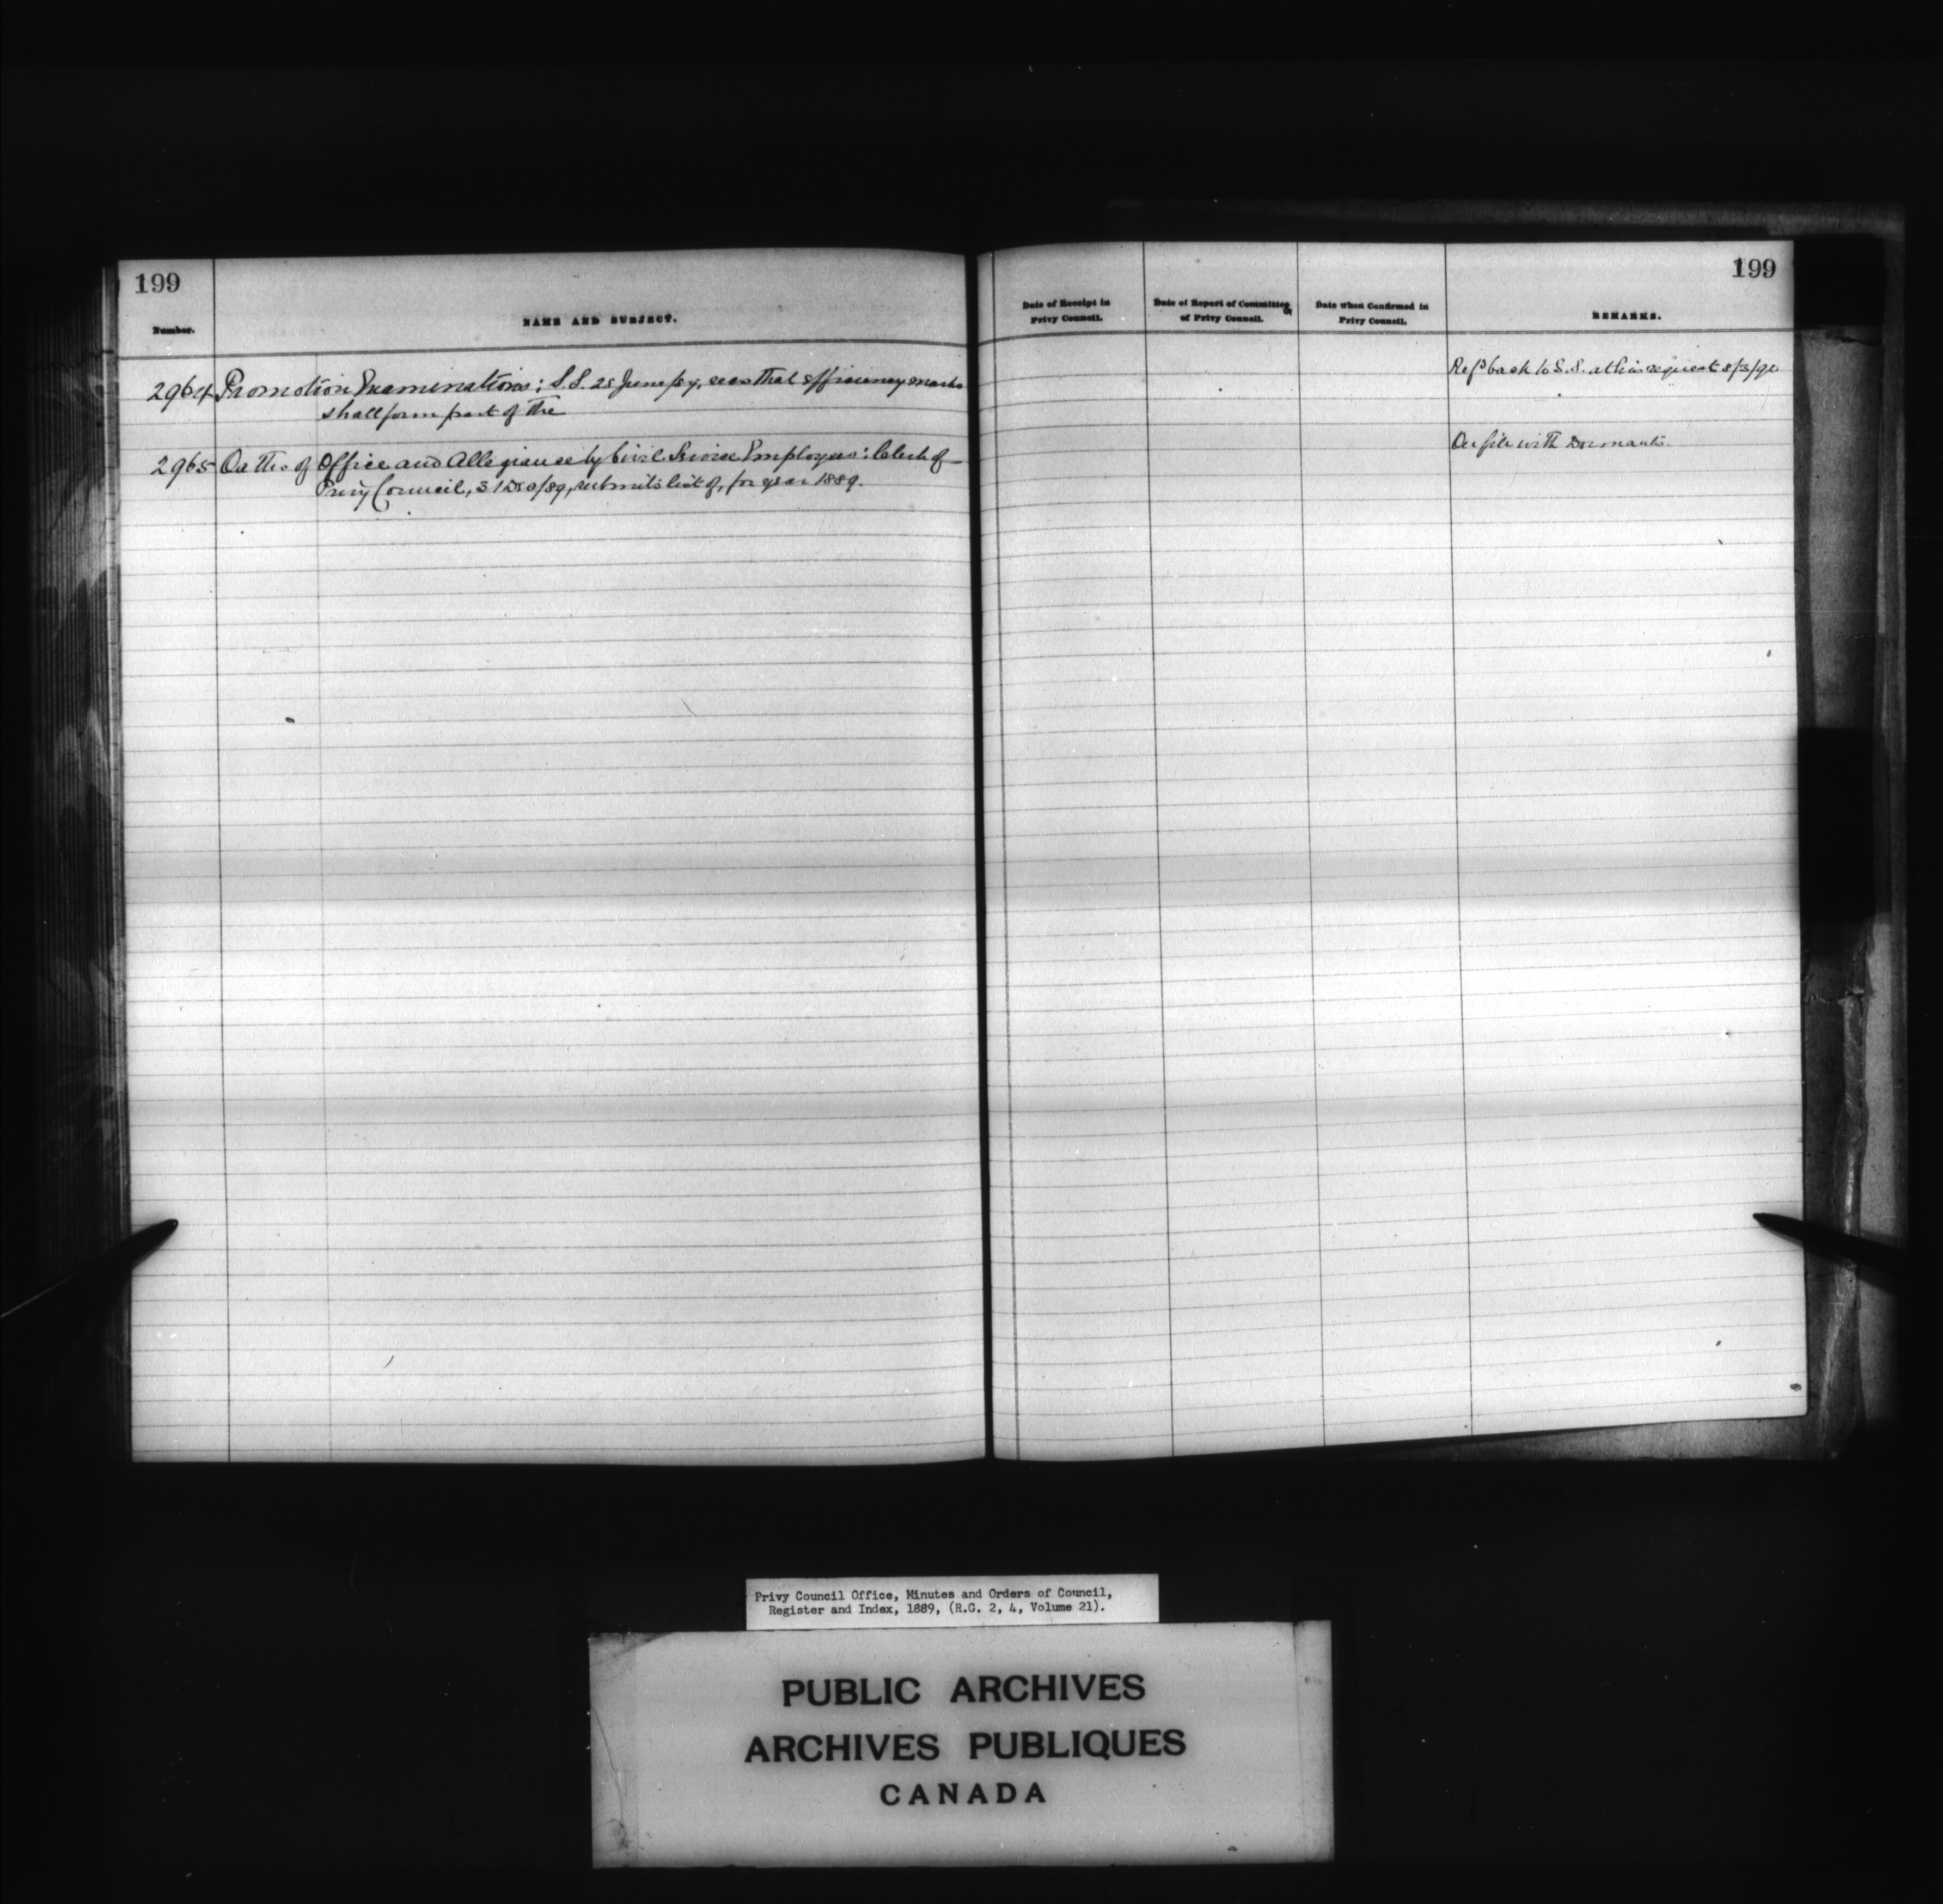 199
Number.
NAME AND SUBJECT.
2964 Promotion Examinations: S.S. 25 June/89, recs that efficiency marks
shall form part of the
2965 Oaths of Office and Allegiance by Civil Service Employees: Clerk of
Privy Council, 31 Dec/89, submits list of, for year 1889.
199
Date of Receipt in
Privy Council.
Date of Report of Committee
of Privy Council.
Date when Confirmed in
Privy Council.
REMARKS.
back to S.S. at his request 8/3/90
On file with Dormants.
Privy Council Office, Minutes and Orders of Council,
Register and Index, 1889, (R.G. 2, 4, Volume 21).
PUBLIC ARCHIVES
ARCHIVES PUBLIQUES
CANADA